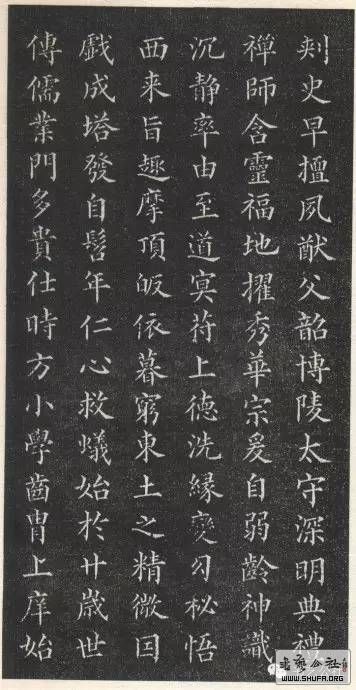 刾史早擅夙猷父韶博陵太守深明典禮
禪師含靈福地擢秀華宗爰自弱齡神識
沉静率由至道冥苻上德洗緣變勾秘悟
西来旨趣摩頂皈依暮窮東土之精微因
戲成塔發自髫年仁心救蟻始於廿歲世
傳儒業門多貴仕時方小學齒胄上庠始
書藝公社
WWW.SHUFA.ORG